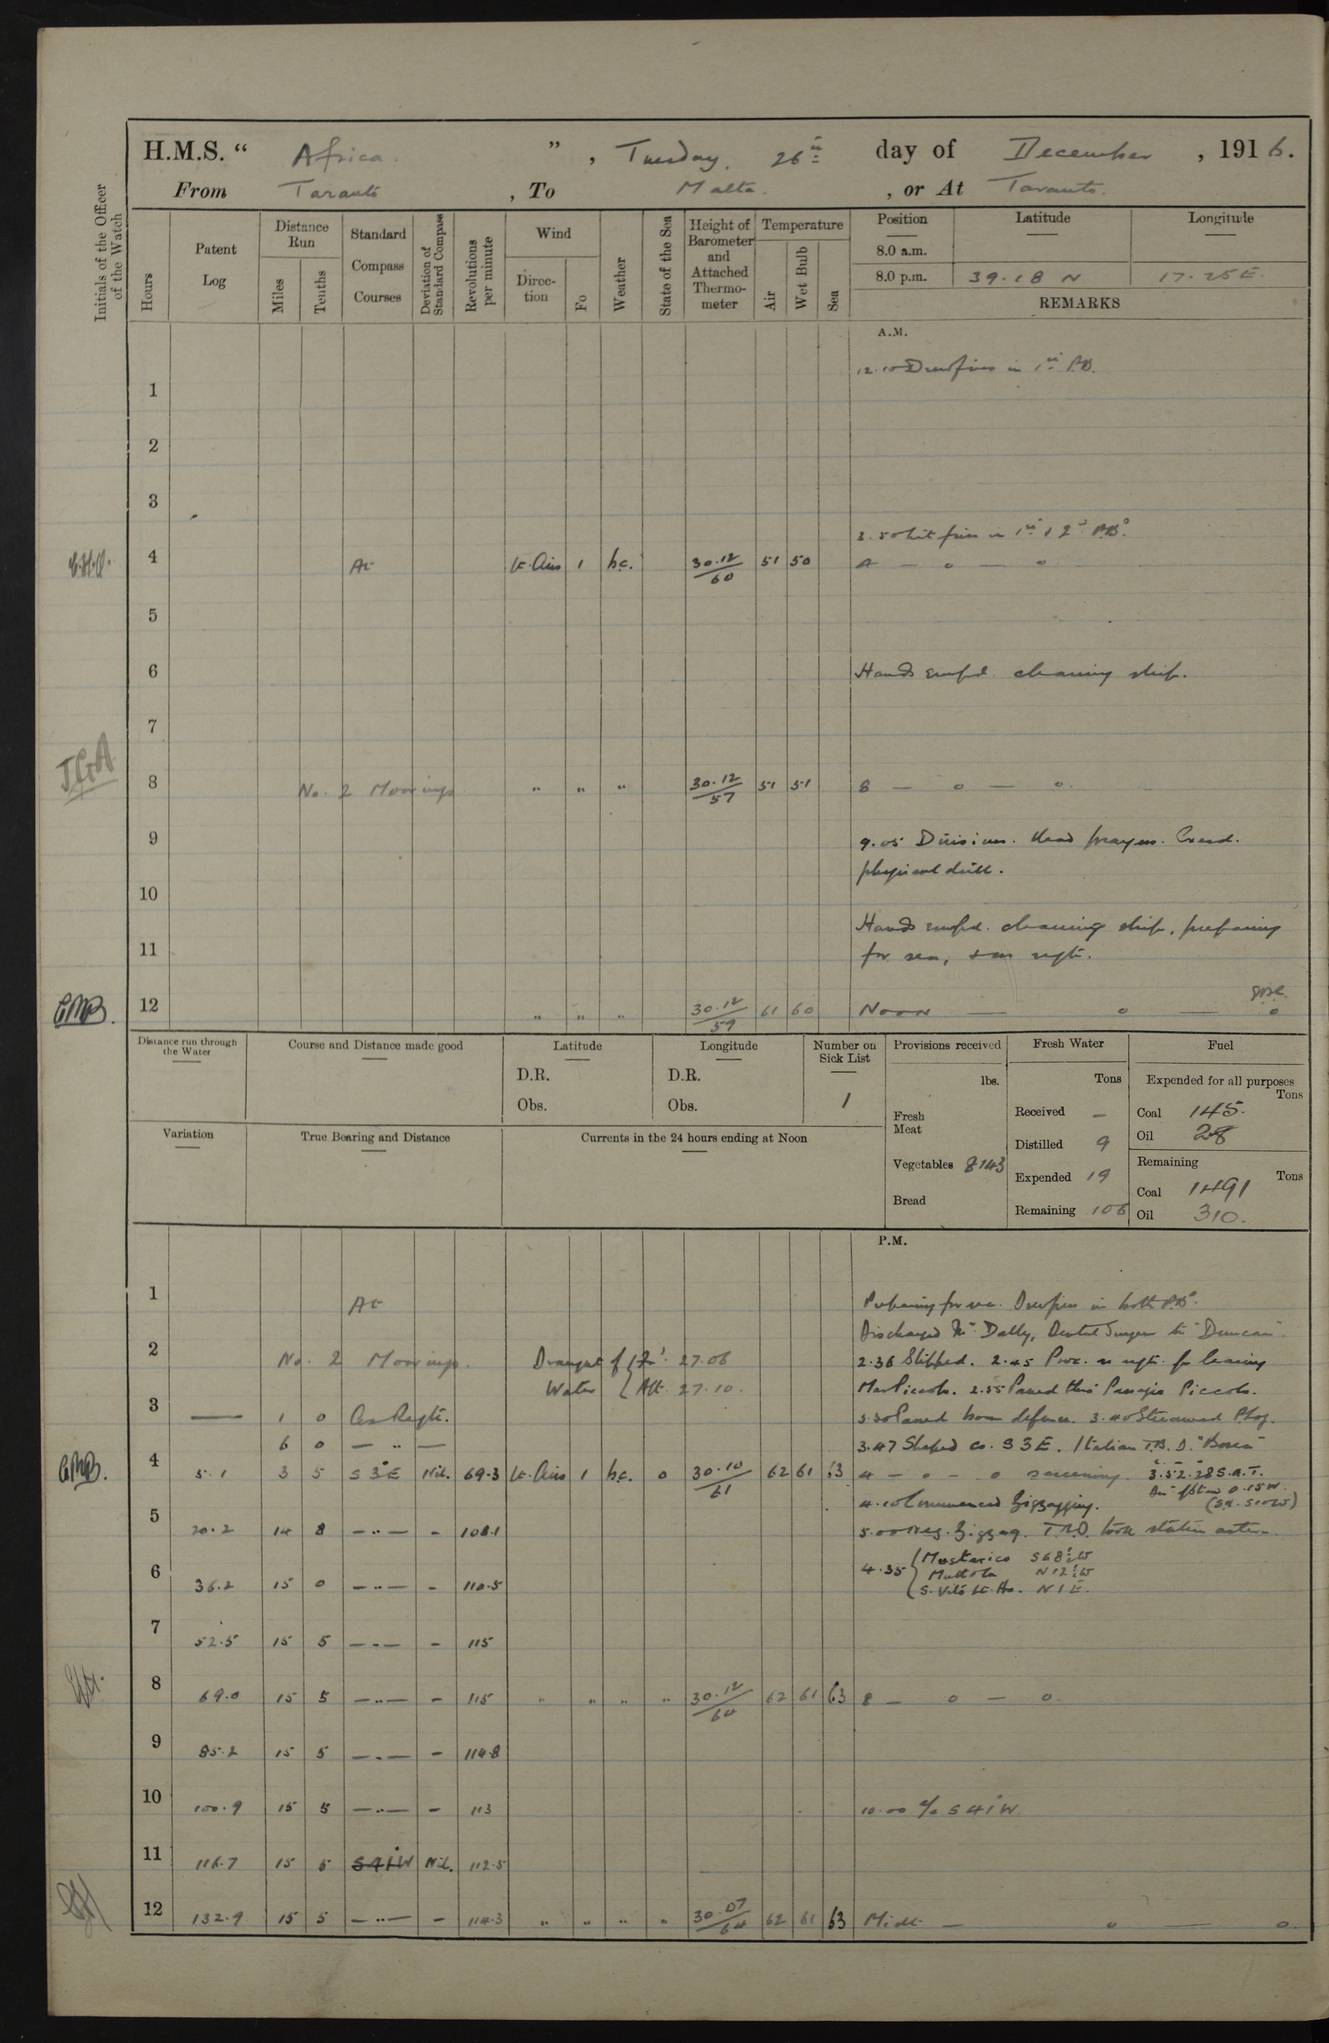 H.M.S. “ Africa ” , Tuesday. 26th day of December , 1916.
From Taranto , To Malta. , or At Taranto.
Initials of the Officer of the Watch
Hours
Patent Log
Distance Run
Miles
Tenths
Standard Compass Courses
Deviation of Standard Compass
Revolutions per minute
Wind
Direction
Fo
Weather
State of the Sea
Height of Barometer and Attached Thermometer
Temperature
Air
Wet Bulb
Sea
Position Latitude Longitude
8.0 a.m.
8.0 p.m. 39.18 N 17.25 E.
REMARKS
A.M.
1 12.10 Drew fires in 1st P.B.
2
3
3.50 Lit fires in 1st & 2d P.B.s
4 At Lt. Airs 1 b.c. 30.12/60 51 50 4 — o — o
5
6 Hands empd. cleaning ship.
7
JGA 8 No. 2 Moorings „ „ „ 30.12/57 51 51 8 — o — o.
9 9.05 Divisions. Read prayers. Cread.
physical drill.
10
Hands empd. cleaning ship, preparing
11 for sea, & as reqte.
12 „ „ „ 30.12/59 61 60 Noon — o — o
Distance run through the Water
Course and Distance made good
Latitude
D.R.
Obs.
Longitude
D.R.
Obs.
Number on Sick List
1
Provisions received
lbs.
Fresh Meat
Vegetables 8143
Bread
Fresh Water
Tons
Received —
Distilled 9
Expended 19
Remaining 106
Fuel
Expended for all purposes
Tons
Coal 145.
Oil 28
Remaining
Tons
Coal 1491
Oil 310.
Variation
True Bearing and Distance
Currents in the 24 hours ending at Noon
P.M.
1 At Preparing for sea. Drew fires in both P.B.s
Discharged Mr Dally, Dental Surgeon to "Duncan"
2 No. 2 Moorings. Draught of Water { For'd 27.06 2.36 Slipped. 2.45 Proc. as reqte. for leaving
Aft 27.10. Mar Piccolo. 2.55 Passed thro' Passagio Piccolo.
3 — 1 0 As Reqte. 3.30 Passed boom defence. 3.40 Streamed P.Log.
6 0 — „ — 3.47 Shaped co. S 3 E. Italian T.B.D. "Borea"
4 5.1 3 5 S 3° E Nil. 69.3 Lt. Airs 1 b.c. 0 30.10/61 62 61 63 4 — o — o screening. 3.52.28 S.A.T.
4.10 Commenced Zigzagging.
5 20.2 14 8 — „ — - 108.1 5.00 Neg. Zigzag. T.B.D. took station astern.
6 36.2 15 0 — „ — - 110.5 4.35 { S 68½ W
N 12½ W
S. Vito Lt. Ho. N 1 E.
7 52.5 15 5 — „ — - 115
8 69.0 15 5 — „ — - 115 „ „ „ „ 30.12/60 62 61 63 8 — o — o.
9 85.2 15 5 — „ — - 114.8
10 100.9 15 5 — „ — - 113 10.00 a/c S 41 W
11 116.7 15 5 S 41° W Nil. 112.5
12 132.9 15 5 — „ — - 114.3 „ „ „ „ 30.07/60 62 61 63 Midt. — o — o